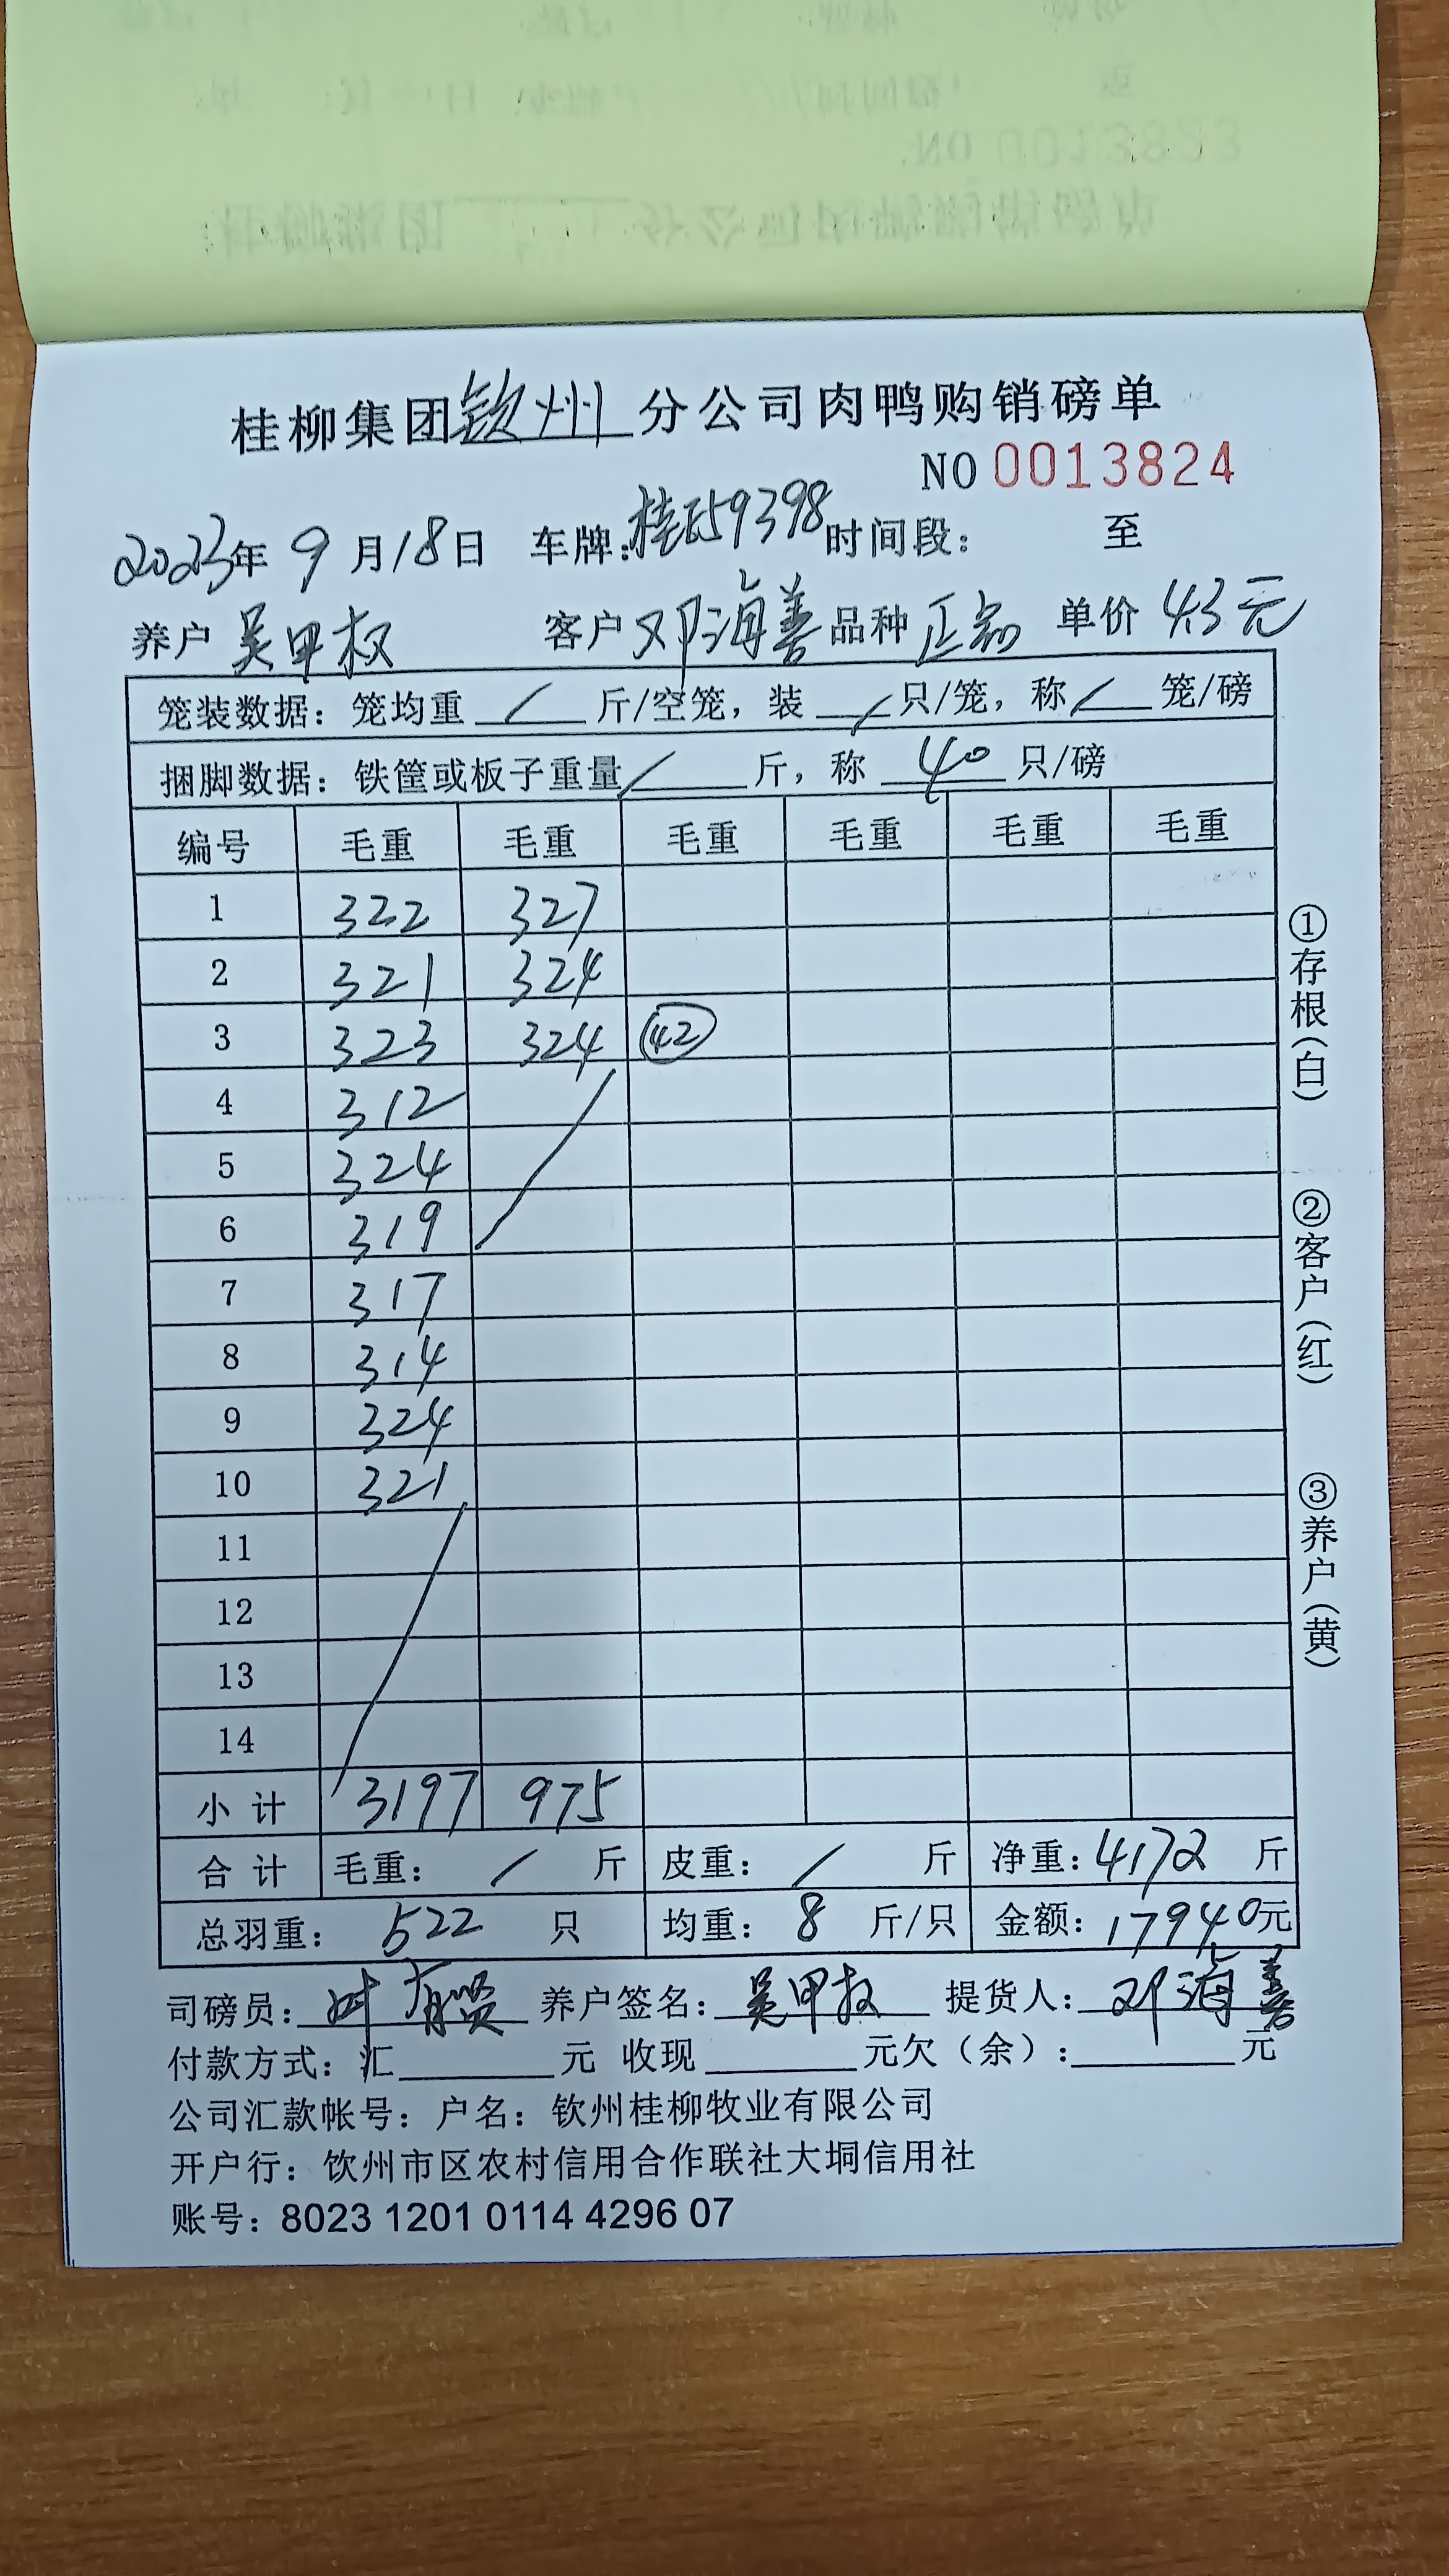 桂柳集团钦州分公司肉鸭购销磅单
NO 0013824
2023年 9月18日 车牌:桂E59398 时间段: 至
养户 吴甲权 客户 邓海善 品种 正品 单价 4.3元
笼装数据:笼均重 / 斤/空笼,装 / 只/笼,称 / 笼/磅
捆脚数据:铁筐或板子重量 / 斤,称 40 只/磅
编号 毛重 毛重 毛重 毛重 毛重 毛重
1 322 327
2 321 324
3 323 324 42
4 312
5 324
6 319
7 317
8 314
9 324
10 321
11
12
13
14
小计 3197 975
合计 毛重: / 斤 皮重: / 斤 净重:4172 斤
总羽重: 522 只 均重: 8 斤/只 金额:17940元
司磅员:叶有贤 养户签名:吴甲权 提货人:邓海善
付款方式:汇 元 收现 元欠(余): 元
公司汇款帐号:户名:钦州桂柳牧业有限公司
开户行:钦州市区农村信用合作联社大垌信用社
账号:8023 1201 0114 4296 07
①存根(白)
②客户(红)
③养户(黄)